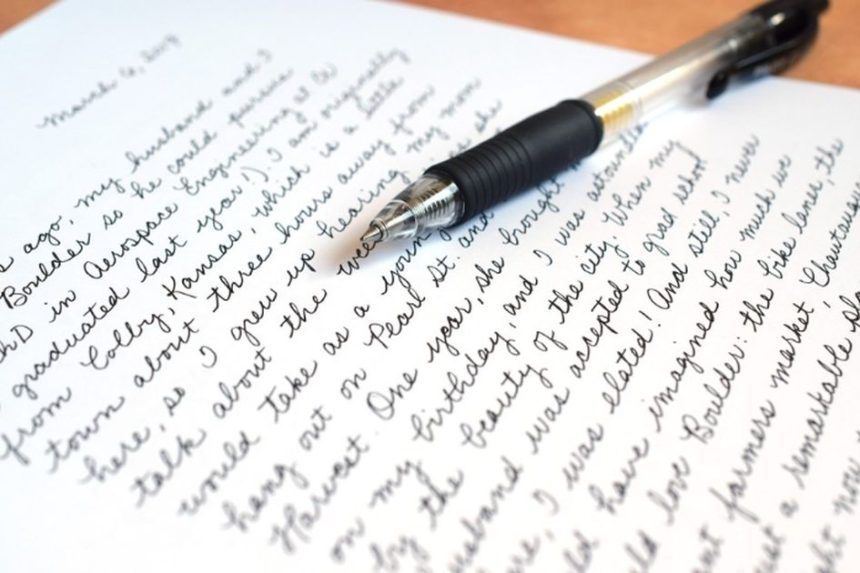 March 6,
ago, my husband and I
Boulder so he could pursue
hD in Aerospace Engineering at
graduated last year!) I am originally
from Colby, Kansas, which is a little
town about three hours away from
here, so I grew up hearing my mom
talk about the wee she
would take as a young
hang out on Pearl St. and
Harvest. One year, she brought
on my birthday, and I was astounde
by the beauty of the city. When my
usband was accepted to grad school
re, I was elated! And still, I never
ld have imagined how much we
ld love Boulder: the bike lanes, the
nt farmers market, Chautauqu
ust a remarkable pla
ht now